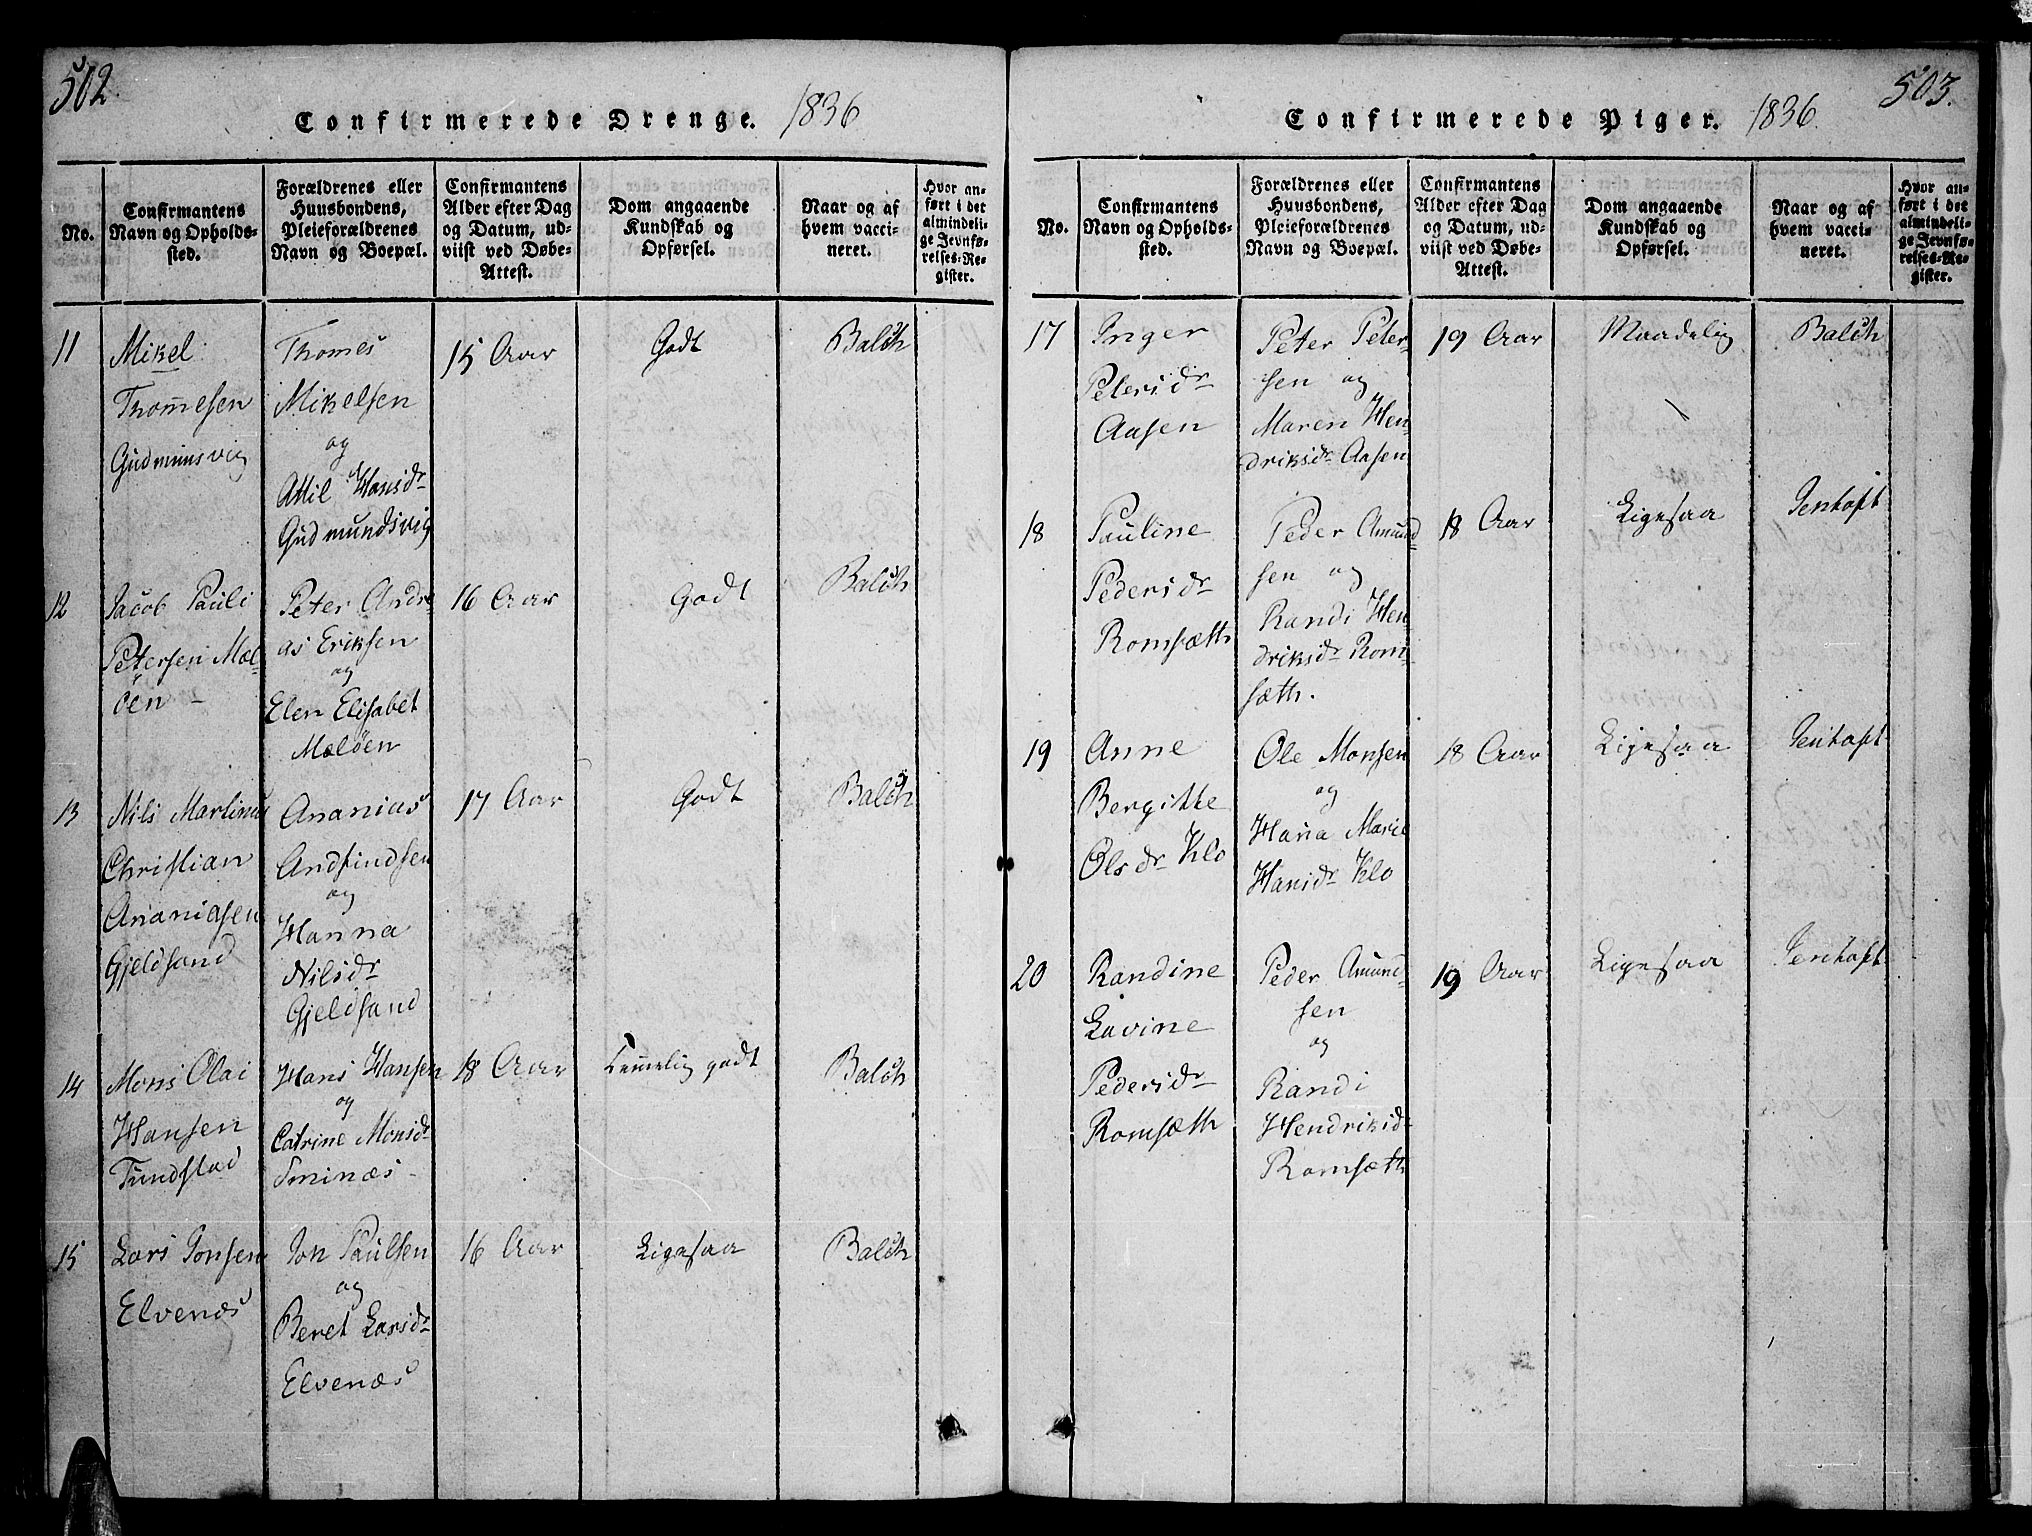 502
Confirmerede Drenge. 1836
No.
Confirmantens
Navn og Opholds-
sted.
Forældrenes eller
Huusbondens,
Pleieforældrenes
Navn og Boepæl.
Confirmantens
Alder efter Dag
og Datum, ud-
viist ved Døbe-
Attest.
Dom angaaende
Kundskab og
Opførsel.
Naar og af
hvem vacci-
neret.
Hvor an-
ført i det
almindeli-
ge Jevnfø-
relses-Re-
gister.
11
Mikel
Thomesen
Gudmunsvig
Thomes
Mikelsen
og
Attil Hansdr
Gudmundsvig
15 Aar
Godt
Balch
12
Jacob Pauli
Petersen Mæl-
öen -
Peter Andre
as Eriksen
og
Elen Elisabet
Mæløen
16 Aar
Godt
Balch
13
Nils Martinus
Christian
Ananiasen
Gjeldsand
Ananias
Andfindsen
og
Hanna
Nilsdr
Gjeldsand
17 Aar
Godt
Balch
14
Mons Olai
Hansen
Tundstad
Hans Hansen
og
Catrine Monsdr
Sminæs -
18 Aar
Temmelig godt
Balch
15
Lars Jonsen
Elvenæs
Jon Paulsen
og
Beret Larsdr
Elvenæs
16 Aar
Ligesaa
Balch
503.
Confirmerede Piger. 1836
No.
Confirmantens
Navn og Opholds-
sted.
Forældrenes eller
Huusbondens,
Pleieforældrenes
Navn og Boepæl.
Confirmantens
Alder efter Dag
og Datum, ud-
viist ved Døbe-
Attest.
Dom angaaende
Kundskab og
Opførsel.
Naar og af
hvem vacci-
neret.
Hvor an-
ført i det
almindeli-
ge Jevnfø-
relses-Re-
gister.
17
Inger
Petersdr
Aasen
Peter Peter-
sen og
Maren Hen-
driksdr Aasen
19 Aar
Maadelig
Balch
18
Pauline
Pedersdr
Romsæth
Peder Amund-
sen og
Randi Hen-
driksdr Rom-
sæth.
18 Aar
Ligesaa
Jentoft
19
Anne
Bergitte
Olsdr Klo
Ole Monsen
og
Hana Marie
Hansdr Klo
18 Aar
Ligesaa
Jentoft
20
Randine
Lavine
Pedersdr
Romsæth
Peder Amund-
sen
og
Randi
Hendriksdr
Romsæth
19 Aar
Ligesaa
Jentoft